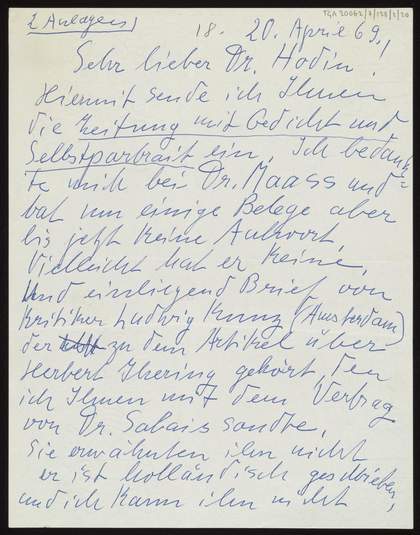 TGA 20062/4/128/1/20
2 Anlagen
18. 20. April 69.
Sehr lieber Dr. Hodin!
Hiermit sende ich Ihnen
die Zeitung mit Gedicht und
Selbstportrait ein. Ich bedank
te mich bei Dr. Maass und
bat um einige Belege aber
bis jetzt keine Antwort,
Vielleicht hat er keine,
Und einliegend Brief von
Kritiker Ludwig Kunz (Amsterdam)
der zu dem Artikel über
Herbert Ihering gehört, den
ich Ihnen mit dem Vertrag
von Dr. Sabais sandte,
Sie erwähnten ihn nicht
er ist holländisch geschrieben,
und ich kann ihn nicht